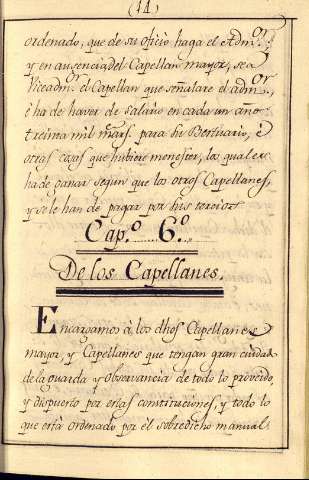 (14)
ordenado, que de su oficio haga el Adm.or
y en ausencia del Capellan mayor, sea
Viceadm.or el Capellan que señalare el adm.or
è ha de haver de salario en cada un año
treinta mil mars. para su Bestuario, è
otras cosas que hubiere menester, los quales
ha de ganar segun que los otros Capellanes,
y se le han de pagar por sus tercios
Cap.o 6.o
De los Capellanes.
Encargamos à los dhos Capellanes
mayor, y Capellanes que tengan gran cuidado
de la guarda y observancia de todo lo proveido,
y dispuesto por estas constituciones, y todo lo
que està ordenado por el sobredicho manual